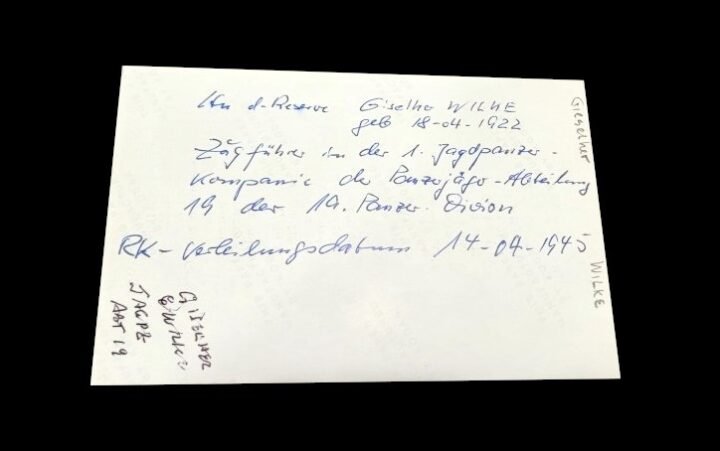 Ltn d. Reserve Giselher WILKE
geb 18-04-1922
Zugführer in der 1. Jagdpanzer-
Kompanie der Panzerjäger-Abteilung
19 der 19. Panzer-Division
RK-Verleihungsdatum 14-04-1945
Gieselher
WILKE
GISELHER
Wilke
JAGPZ
ABT 19